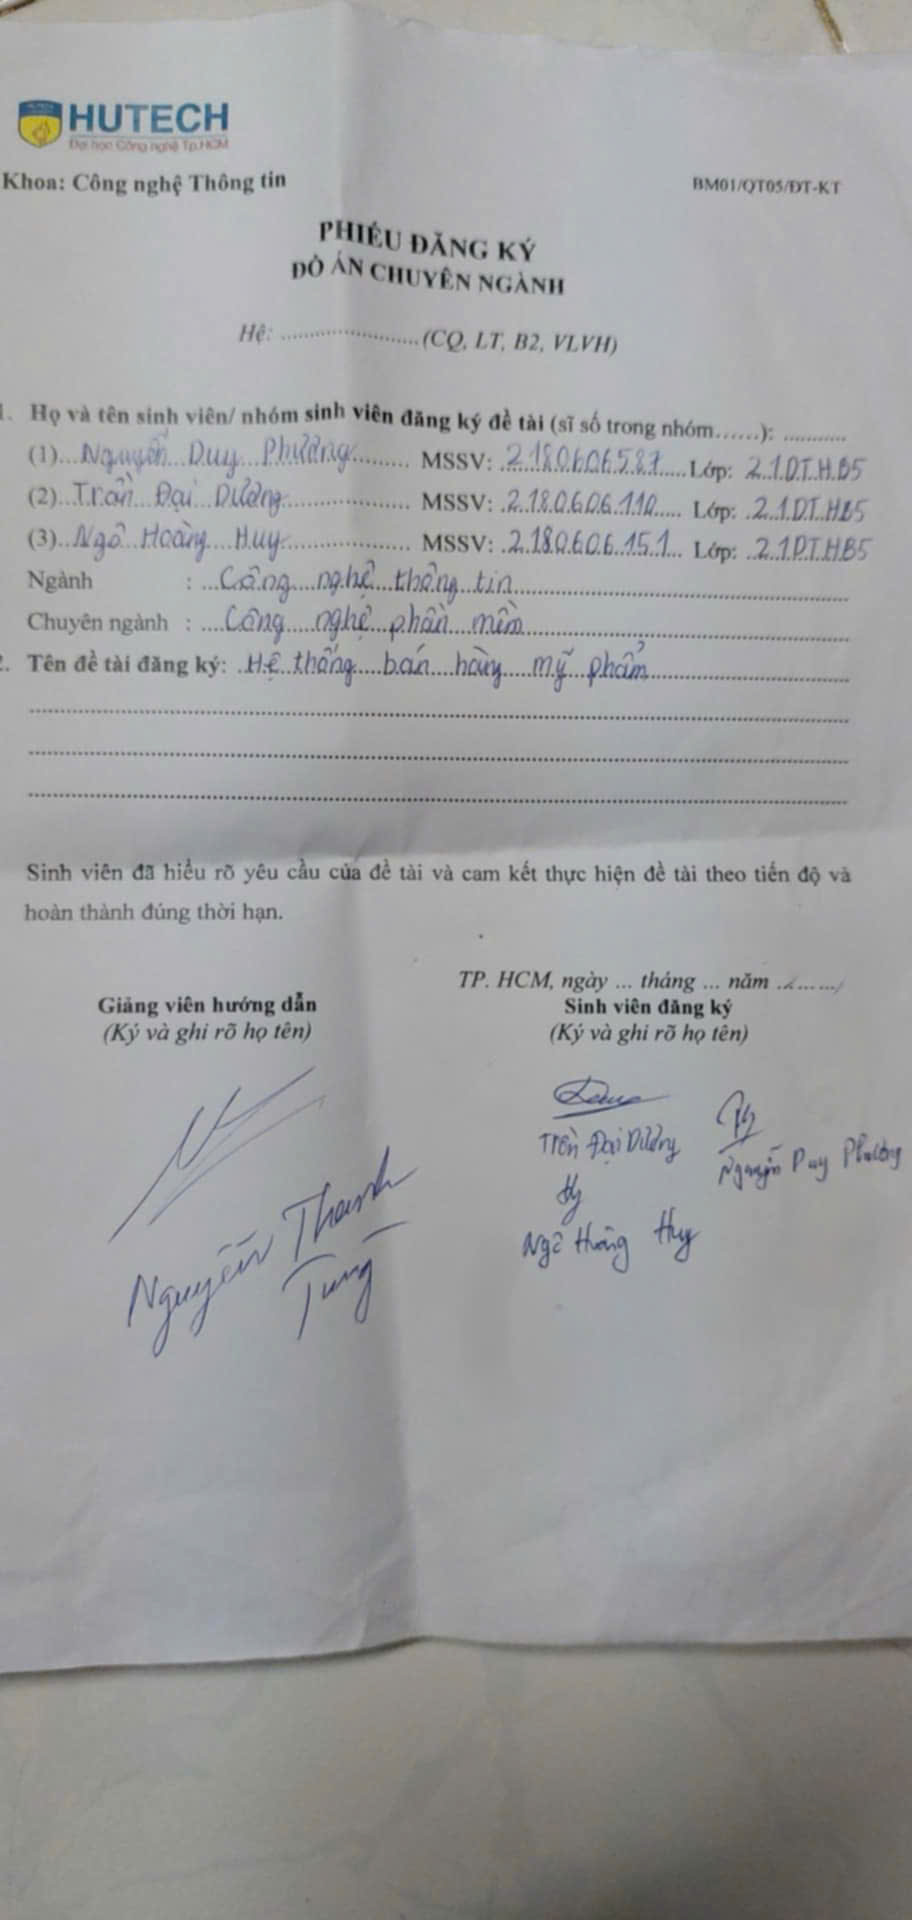 HUTECH
Đại học Công nghệ Tp.HCM
Khoa: Công nghệ Thông tin
BM01/QT05/ĐT-KT
PHIẾU ĐĂNG KÝ
ĐỒ ÁN CHUYÊN NGÀNH
Hệ: ........................(CQ, LT, B2, VLVH)
1. Họ và tên sinh viên/ nhóm sinh viên đăng ký đề tài (sĩ số trong nhóm......): ...........
(1)...Nguyễn Duy Phương......... MSSV: 2180606587 Lớp: 21DTHB5
(2)..Trần Đại Dương......... MSSV: 2180606110 Lớp: 21DTHB5
(3)..Ngô Hoàng Huy......... MSSV: 2180606151 Lớp: 21DTHB5
Ngành : ...Công nghệ thông tin
Chuyên ngành : ....Công nghệ phần mềm
2. Tên đề tài đăng ký: Hệ thống bán hàng mỹ phẩm
Sinh viên đã hiểu rõ yêu cầu của đề tài và cam kết thực hiện đề tài theo tiến độ và
hoàn thành đúng thời hạn.
TP. HCM, ngày ... tháng ... năm .........
Giảng viên hướng dẫn
(Ký và ghi rõ họ tên)
Sinh viên đăng ký
(Ký và ghi rõ họ tên)
Trần Đại Dương
Nguyễn Duy Phương
Ngô Hoàng Huy
Nguyễn Thanh
Tùng